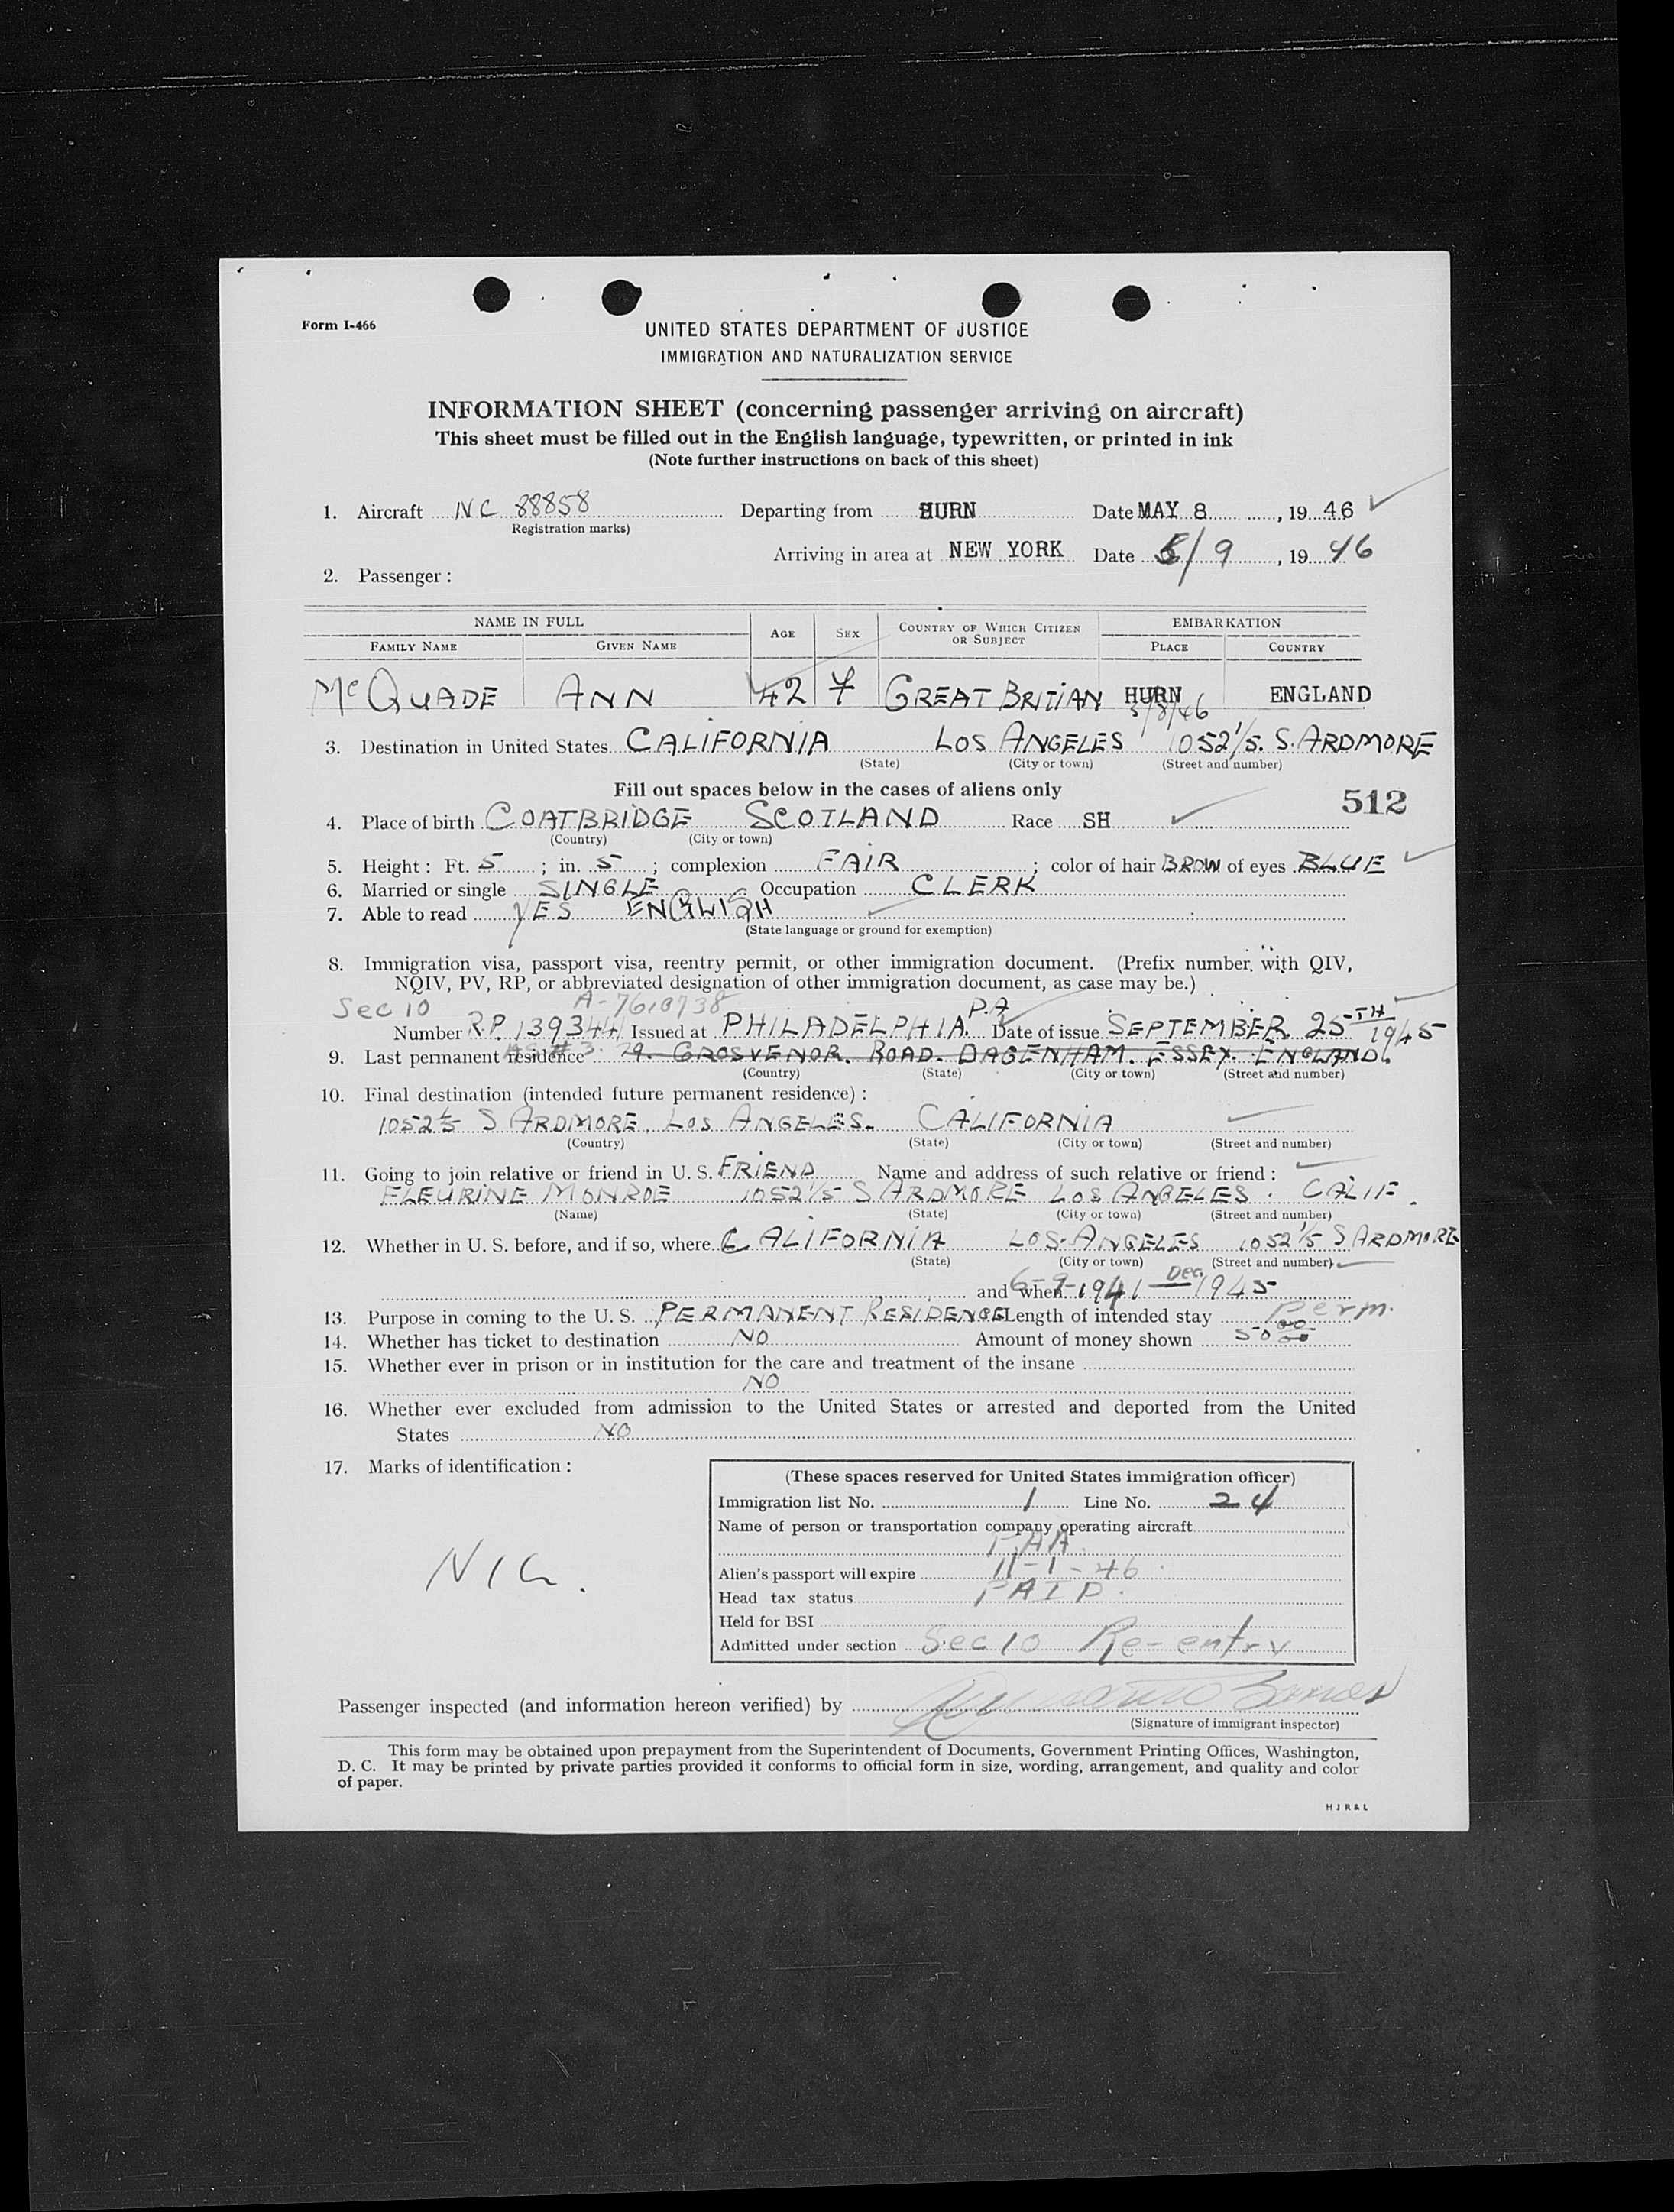 Form I-466
UNITED STATES DEPARTMENT OF JUSTICE
IMMIGRATION AND NATURALIZATION SERVICE
INFORMATION SHEET (concerning passenger arriving on aircraft)
This sheet must be filled out in the English language, typewritten, or printed in ink
(Note further instructions on back of this sheet)
1. Aircraft NC 88858 Departing from HURN Date MAY 8, 1946
Registration marks)
Arriving in area at NEW YORK Date 5/9, 1946
2. Passenger:
NAME IN FULL AGE SEX COUNTRY OF WHICH CITIZEN OR SUBJECT EMBARKATION
FAMILY NAME GIVEN NAME PLACE COUNTRY
McQUADE ANN 42 F GREAT BRITIAN HURN ENGLAND
5/8/46
3. Destination in United States CALIFORNIA LOS ANGELES 1052 1/5. S. ARDMORE
(State) (City or town) (Street and number)
Fill out spaces below in the cases of aliens only
512
4. Place of birth COATBRIDGE SCOTLAND Race SH
(Country) (City or town)
5. Height: Ft. 5; in. 5; complexion FAIR; color of hair BROW of eyes BLUE
6. Married or single SINGLE Occupation CLERK
7. Able to read YES ENGLISH
(State language or ground for exemption)
8. Immigration visa, passport visa, reentry permit, or other immigration document. (Prefix number with QIV,
NQIV, PV, RP, or abbreviated designation of other immigration document, as case may be.)
Sec 10 A-7610738
Number R.P. 139344 Issued at PHILADELPHIA P.A Date of issue SEPTEMBER 25TH 1945
9. Last permanent residence AS #3 79. GROSVENOR. ROAD. DAGENHAM. ESSEX. ENGLAND.
(Country) (State) (City or town) (Street and number)
10. Final destination (intended future permanent residence):
1052 1/5 S ARDMORE, LOS ANGELES. CALIFORNIA
(Country) (State) (City or town) (Street and number)
11. Going to join relative or friend in U. S. FRIEND Name and address of such relative or friend:
FLEURINE MONROE 1052 1/5 S ARDMORE LOS ANGELES. CALIF.
(Name) (State) (City or town) (Street and number)
12. Whether in U. S. before, and if so, where CALIFORNIA LOS-ANGELES 1052 1/5 S ARDMORE
(State) (City or town) (Street and number)
and when 6-9-1941 — Dec. 1945
13. Purpose in coming to the U. S. PERMANENT RESIDENCE Length of intended stay Perm.
14. Whether has ticket to destination NO Amount of money shown 50 00
15. Whether ever in prison or in institution for the care and treatment of the insane
NO
16. Whether ever excluded from admission to the United States or arrested and deported from the United
States NO
17. Marks of identification:
(These spaces reserved for United States immigration officer)
Immigration list No. 1 Line No. 24
Name of person or transportation company operating aircraft
PAA
Alien's passport will expire 11-1-46
Head tax status PAID
Held for BSI
Admitted under section Sec 10 Re-entry
Passenger inspected (and information hereon verified) by
(Signature of immigrant inspector)
This form may be obtained upon prepayment from the Superintendent of Documents, Government Printing Offices, Washington,
D. C. It may be printed by private parties provided it conforms to official form in size, wording, arrangement, and quality and color
of paper.
H J R & L